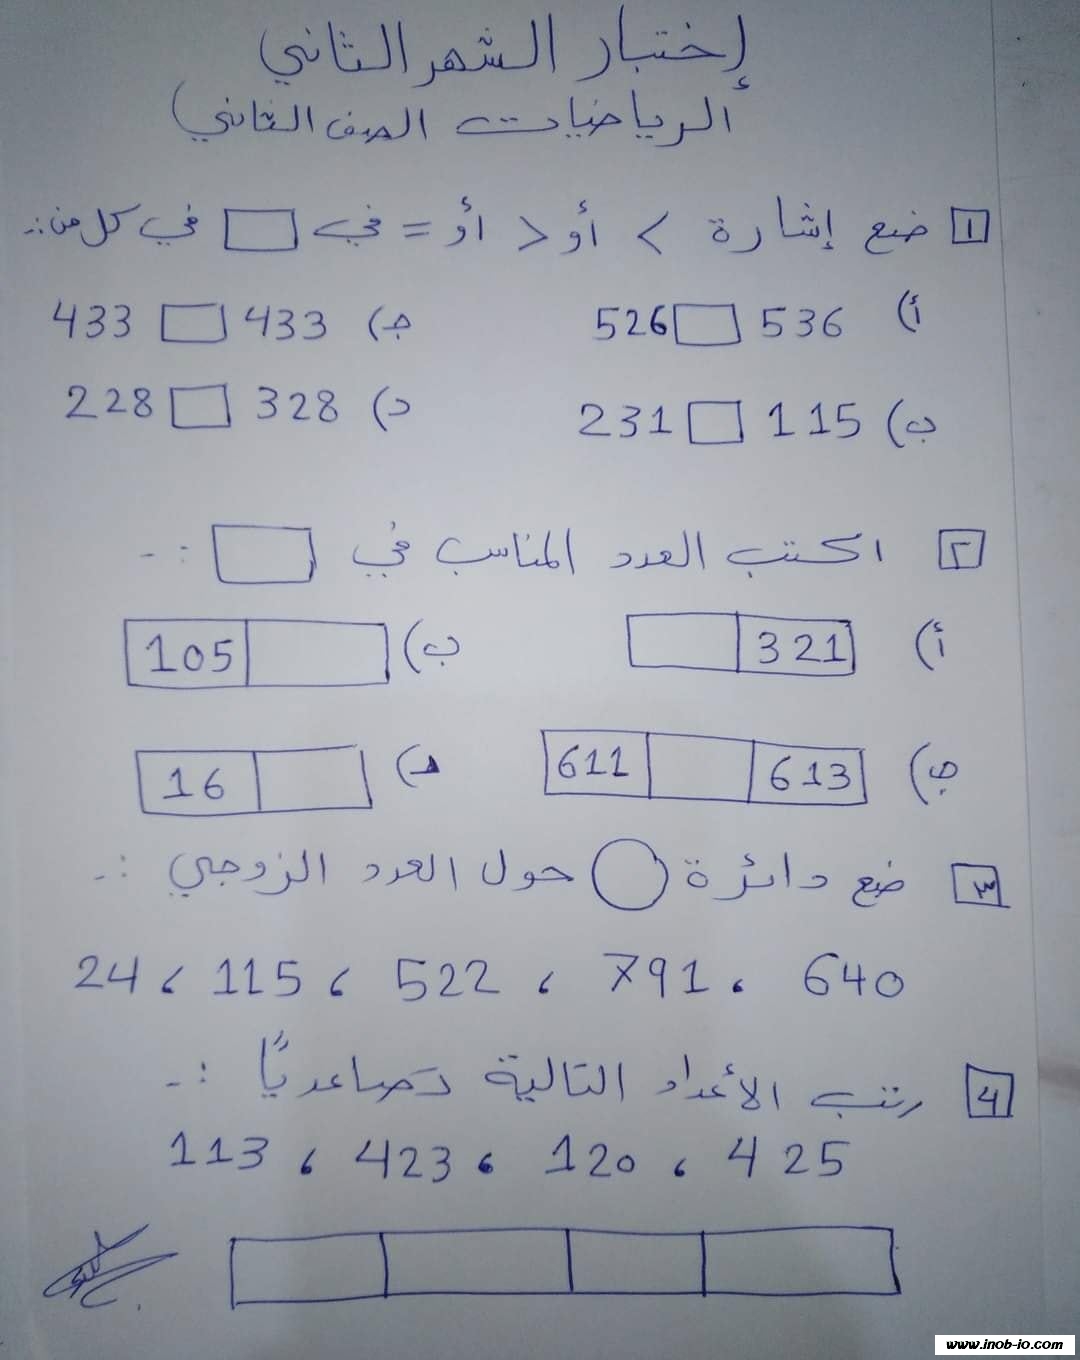 إختبار الشهر الثاني
الرياضيات الصف الثاني)
١ ضع إشارة < أو > أو = في □ في كل من :-
أ) 536 □ 526 ج) 433 □ 433
ب) 115 □ 231 د) 328 □ 228
٢ اكتب العدد المناسب في □ :-
أ) 321 ب) 105
ج) 613 611 د) 16
٣ ضع دائرة ○ حول العدد الزوجي :-
640 ، 791 ، 522 ، 115 ، 24
4 رتب الأعداد التالية تصاعديًا :-
425 ، 120 ، 423 ، 113
www.inob-io.com